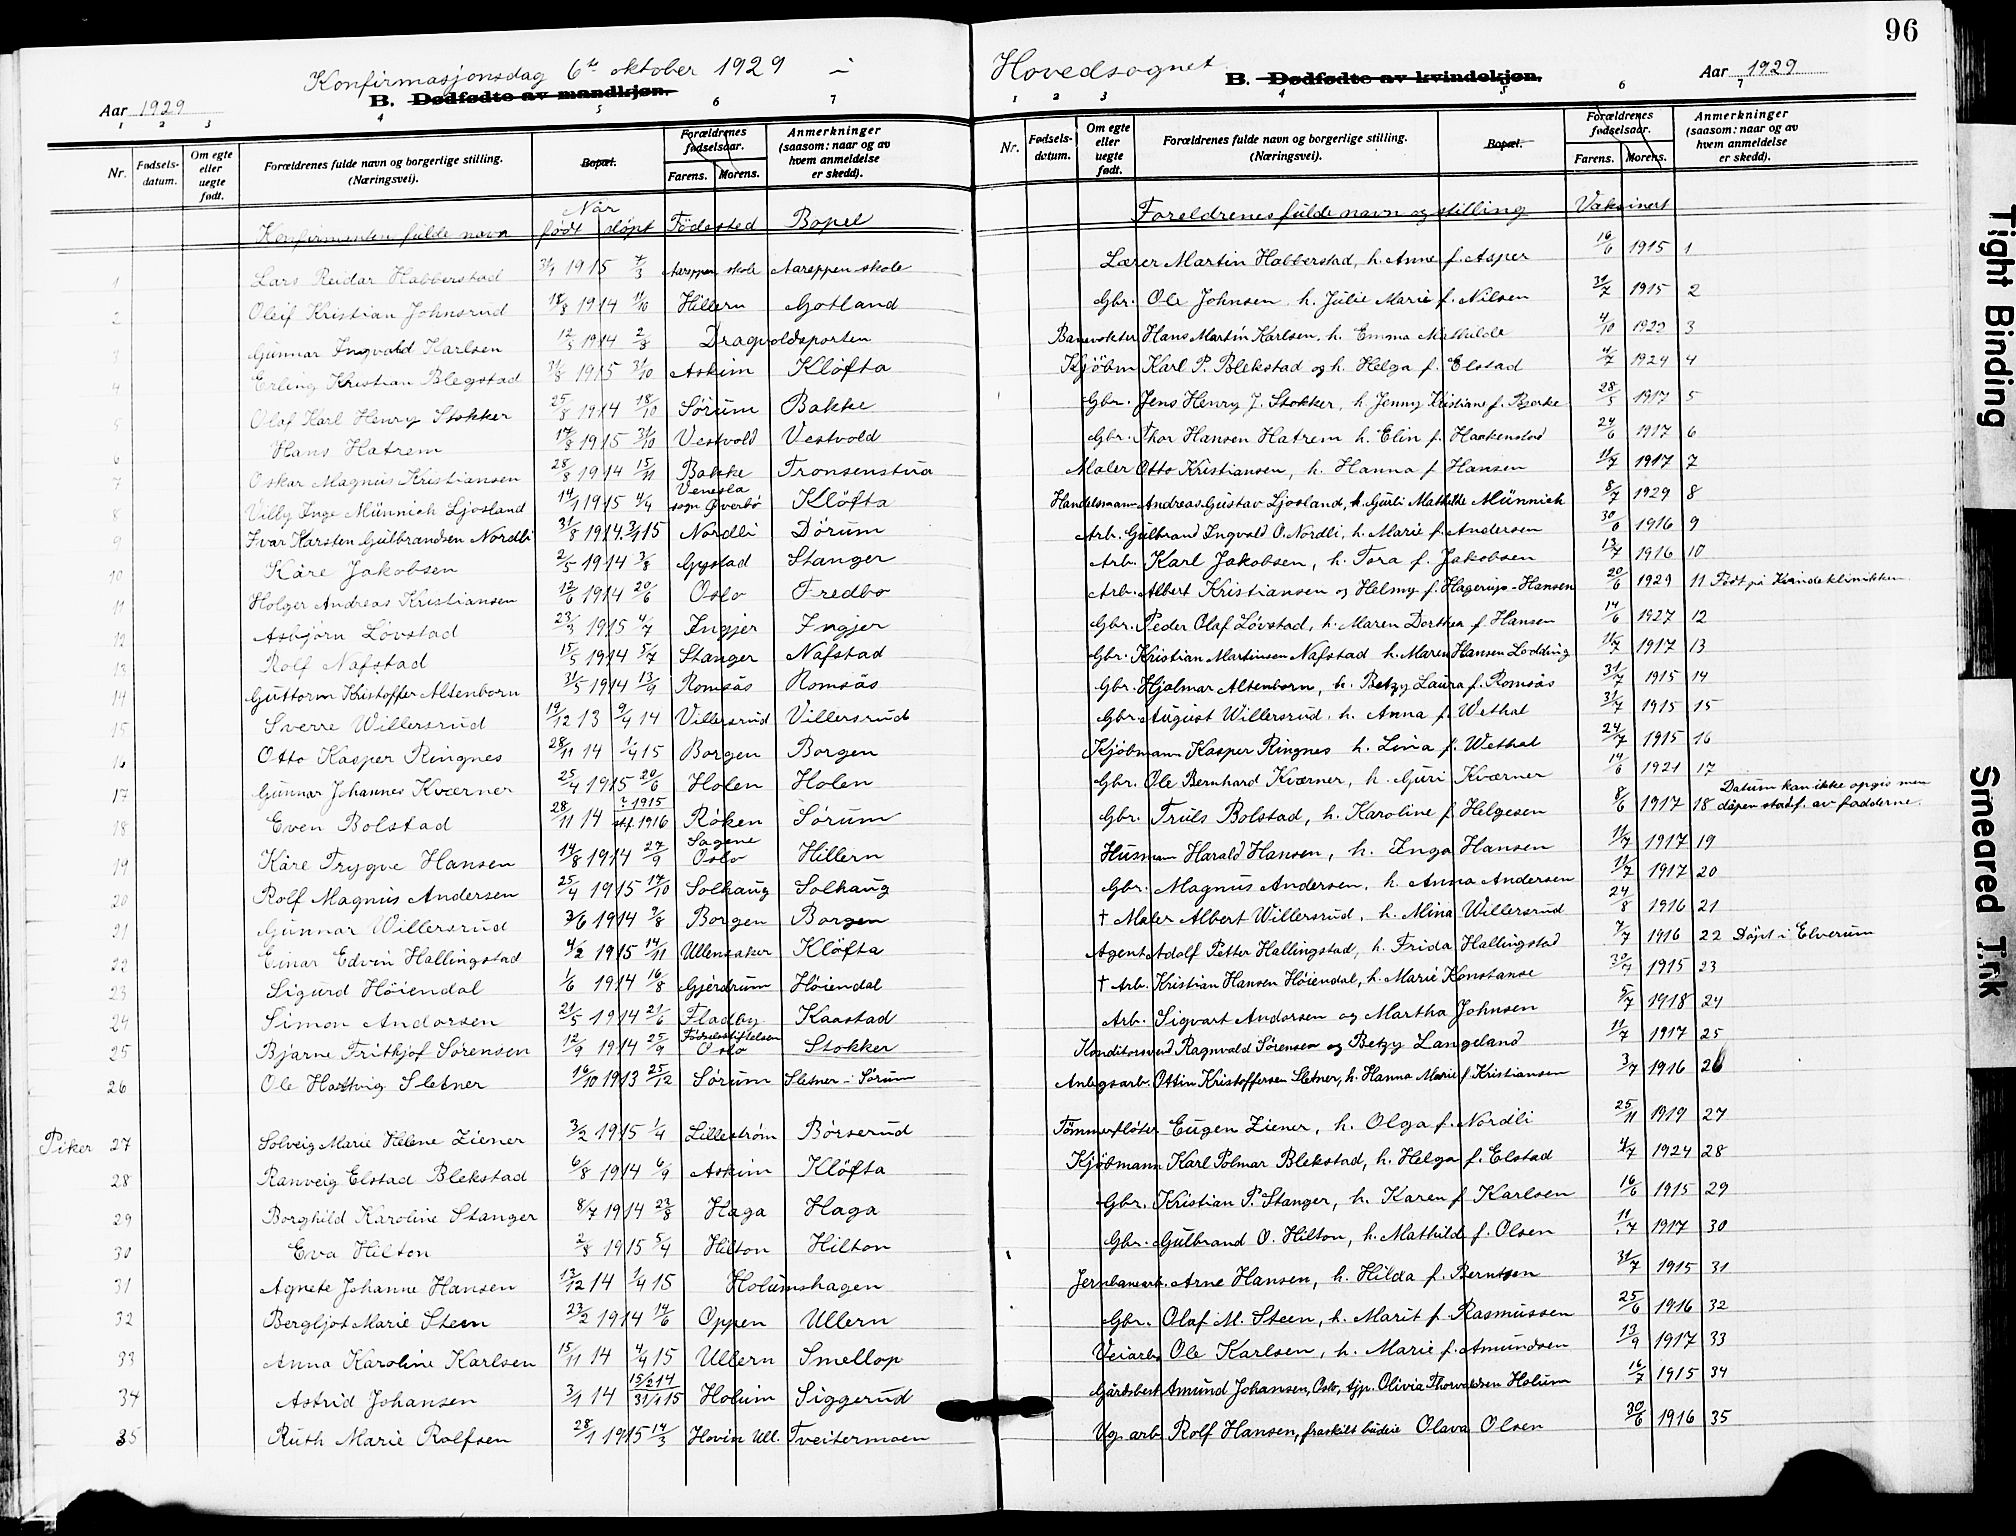 96
Konfirmasjonsdag 6te oktober 1929 i Hovedsognet
Aar 1929 B. Dødfødte av mandkjøn.
B. Dødfødte av kvindekjøn. Aar 1929
1 2 3 4 5 6 7
1 2 3 4 5 6 7
Nr. Fødsels-datum. Om egte eller uegte født. Forældrenes fulde navn og borgerlige stilling. (Næringsvei). Bopæl. Forældrenes fødselsaar. Farens. Morens. Anmerkninger (saasom: naar og av hvem anmeldelse er skedd).
Nr. Fødsels-datum. Om egte eller uegte født. Forældrenes fulde navn og borgerlige stilling. (Næringsvei). Bopæl. Forældrenes fødselsaar. Farens. Morens. Anmerkninger (saasom: naar og av hvem anmeldelse er skedd).
Konfirmantens fulde navn Når født døpt Födested Bopel Foreldrenes fulde navn og stilling Vaksinert
1 Lars Reidar Habberstad 1915 7/3 Aareppen skole Aareppen skole Lærer Martin Habberstad, h. Anne f. Asper 16/6 1915 1
2 Oleif Kristian Johnsrud 18/8 1914 11/10 Hillern Gotland Gbr. Ole Johnsen h. Julie Marie f. Nilsen 31/7 1915 2
3 Gunnar Ingvald Karlsen 12/5 1914 2/8 Dragvoldsporten Banevokter Hans Martin Karlsen, h. Emma Mathilde 4/10 1929 3
4 Erling Kristian Blegstad 31/8 1915 31/10 Askim Kløfta Kjöbm Karl P. Blekstad og h. Helga f. Elstad 4/7 1924 4
5 Olaf Karl Henry Stokker 25/8 1914 18/10 Sørum Bakke Gbr. Jens Henry J. Stokker, h. Jenny Kristiane f. Bjerke 28/5 1917 5
6 Hans Hatrem 17/8 1915 31/10 Vestvold Vestvold Gbr. Thor Hansen Hatrem h. Elin f. Haakenstad 24/6 1917 6
7 Oskar Magnus Kristiansen 28/8 1914 15/11 Bakke Tronsenstua Maler Otto Kristiansen, h. Hanna f. Hansen 11/7 1917 7
8 Villy Inge Münnich Ljosland 14/1 1915 4/4 Venesla sogn Øverbø Kløfta Handelsmann Andreas Gustav Ljosland, h. Gurli Mathilde Münnich 8/7 1929 8
9 Ivar Karsten Gulbrandsen Nordli 31/8 1914 3/1 15 Nordli Dørum Arb. Gulbrand Ingvald O. Nordli, h. Marie f. Andersen 30/6 1916 9
10 Kåre Jakobsen 2/5 1914 3/8 Gystad Stanger Arb. Karl Jakobsen, h. Tora f. Jakobsen 13/7 1916 10
11 Holger Andreas Kristiansen 12/6 1914 20/6 Oslo Fredbo Arb. Albert Kristiansen og Helmy f. Hagerup-Hansen 20/6 1929 11 Født på Kvindeklinikken
12 Asbjørn Lövstad 23/3 1915 4/7 Ingjer Ingjer Gbr. Peder Olaf Lövstad, h. Maren Dorthea f. Hansen 14/6 1927 12
13 Rolf Nafstad 15/5 1914 5/7 Stanger Nafstad Gbr. Kristian Martinsen Nafstad h. Maren Hansen Lodding 11/7 1917 13
14 Guttorm Kristoffer Altenborn 31/5 1914 13/9 Romsås Romsås Gbr. Hjalmar Altenborn, h. Betzy Laura f. Romsås 31/7 1915 14
15 Sverre Willersrud 19/12 13 9/4 14 Villersrud Villersrud Gbr. August Willersrud, h. Anna f. Wethal 31/7 1915 15
16 Otto Kasper Ringnes 28/11 14 1/4 15 Borgen Borgen Kjöbmann Kasper Ringnes h. Lina f. Wethal 24/7 1915 16
17 Gunnar Johannes Kværner 25/4 1915 20/6 Holen Holen Gbr. Ole Bernhard Kværner, h. Guri Kværner 14/6 1921 17
18 Even Bolstad 28/11 14 ? 1915 stf. 1916 Røken Sørum Gbr. Truls Bolstad, h. Karoline f. Helgesen 8/6 1917 18 Datum kan ikke opgis men dåpen stadf. av fadderne.
19 Kåre Trygve Hansen 14/8 1914 27/9 Sagene Oslo Hillern Husmann Harald Hansen, h. Inga Hansen 11/7 1917 19
20 Rolf Magnus Andersen 25/4 1915 17/10 Solhaug Solhaug Gbr. Magnus Andersen, h. Anna Andersen 11/7 1917 20
21 Gunnar Willersrud 3/6 1914 9/8 Borgen Borgen † Maler Albert Willersrud, h. Mina Willersrud 24/8 1916 21
22 Einar Edvin Hallingstad 4/2 1915 14/11 Ullensaker Kløfta Agent Adolf Petter Hallingstad, h. Frida Hallingstad 7/7 1916 22 Döpt i Elverum
23 Sigurd Höiendal 1/6 1914 16/8 Gjerdrum Höiendal † Arb. Kristian Hansen Höiendal, h. Marie Konstanse 30/7 1915 23
24 Simon Andersen 21/5 1914 21/6 Fladby Kaastad Arb. Sigvart Andersen og Martha Johnsen 5/7 1918 24
25 Bjarne Frithjof Sørensen 12/9 1914 25/9 Födselsstiftelsen Oslo Stokker Konditorsvend Ragnvald Sörensen og Betzy Langeland 11/7 1917 25
26 Ole Hartvig Sletner 16/10 1913 25/12 Sørum Sletner i Sørum Anlegsarb. Ottin Kristoffersen Sletner, h. Hanna Marie f. Kristiansen 3/7 1916 26
Piker 27 Solveig Marie Helene Ziener 3/2 1915 1/4 Lillestrøm Börserud Tömmerflöter Eugen Ziener, h. Olga f. Nordli 25/11 1919 27
28 Ranveig Elstad Blekstad 6/8 1914 6/9 Askim Klöfta Kjöbmann Karl Polmar Blekstad, h. Helga f. Elstad 4/7 1924 28
29 Borghild Karoline Stanger 8/7 1914 23/8 Haga Haga Gbr. Kristian P. Stanger, h. Karen f. Karlsen 16/6 1915 29
30 Eva Hilton 2/3 1915 5/4 Hilton Hilton Gbr. Gulbrand O. Hilton, h. Mathild f. Olsen 11/7 1917 30
31 Agnete Johanne Hansen 13/12 14 1/4 15 Holumshagen Jernbanearb. Arne Hansen, h. Hilda f. Berntsen 31/7 1915 31
32 Bergljot Marie Steen 23/2 1914 14/6 Oppen Ullern Gbr. Olaf M. Steen, h. Marit f. Rasmussen 25/6 1916 32
33 Anna Karoline Karlsen 15/11 14 4/4 15 Ullern Smellop Veiarb Ole Karlsen, h. Marie f. Amundsen 13/9 1917 33
34 Astrid Johansen 3/1 14 15/2 14 31/1 15 Holum Siggerud Gårdsbest Amund Johansen, Oslo, tjp. Olivia Thorvaldsen Holum 16/7 1915 34
35 Ruth Marie Rolfsen 28/1 1915 14/3 Hovin Ull. Tveitermoen Vg. arb Rolf Hansen, fraskilt budeie Olava Olsen 30/6 1916 35
Tight Binding
Smeared Ink